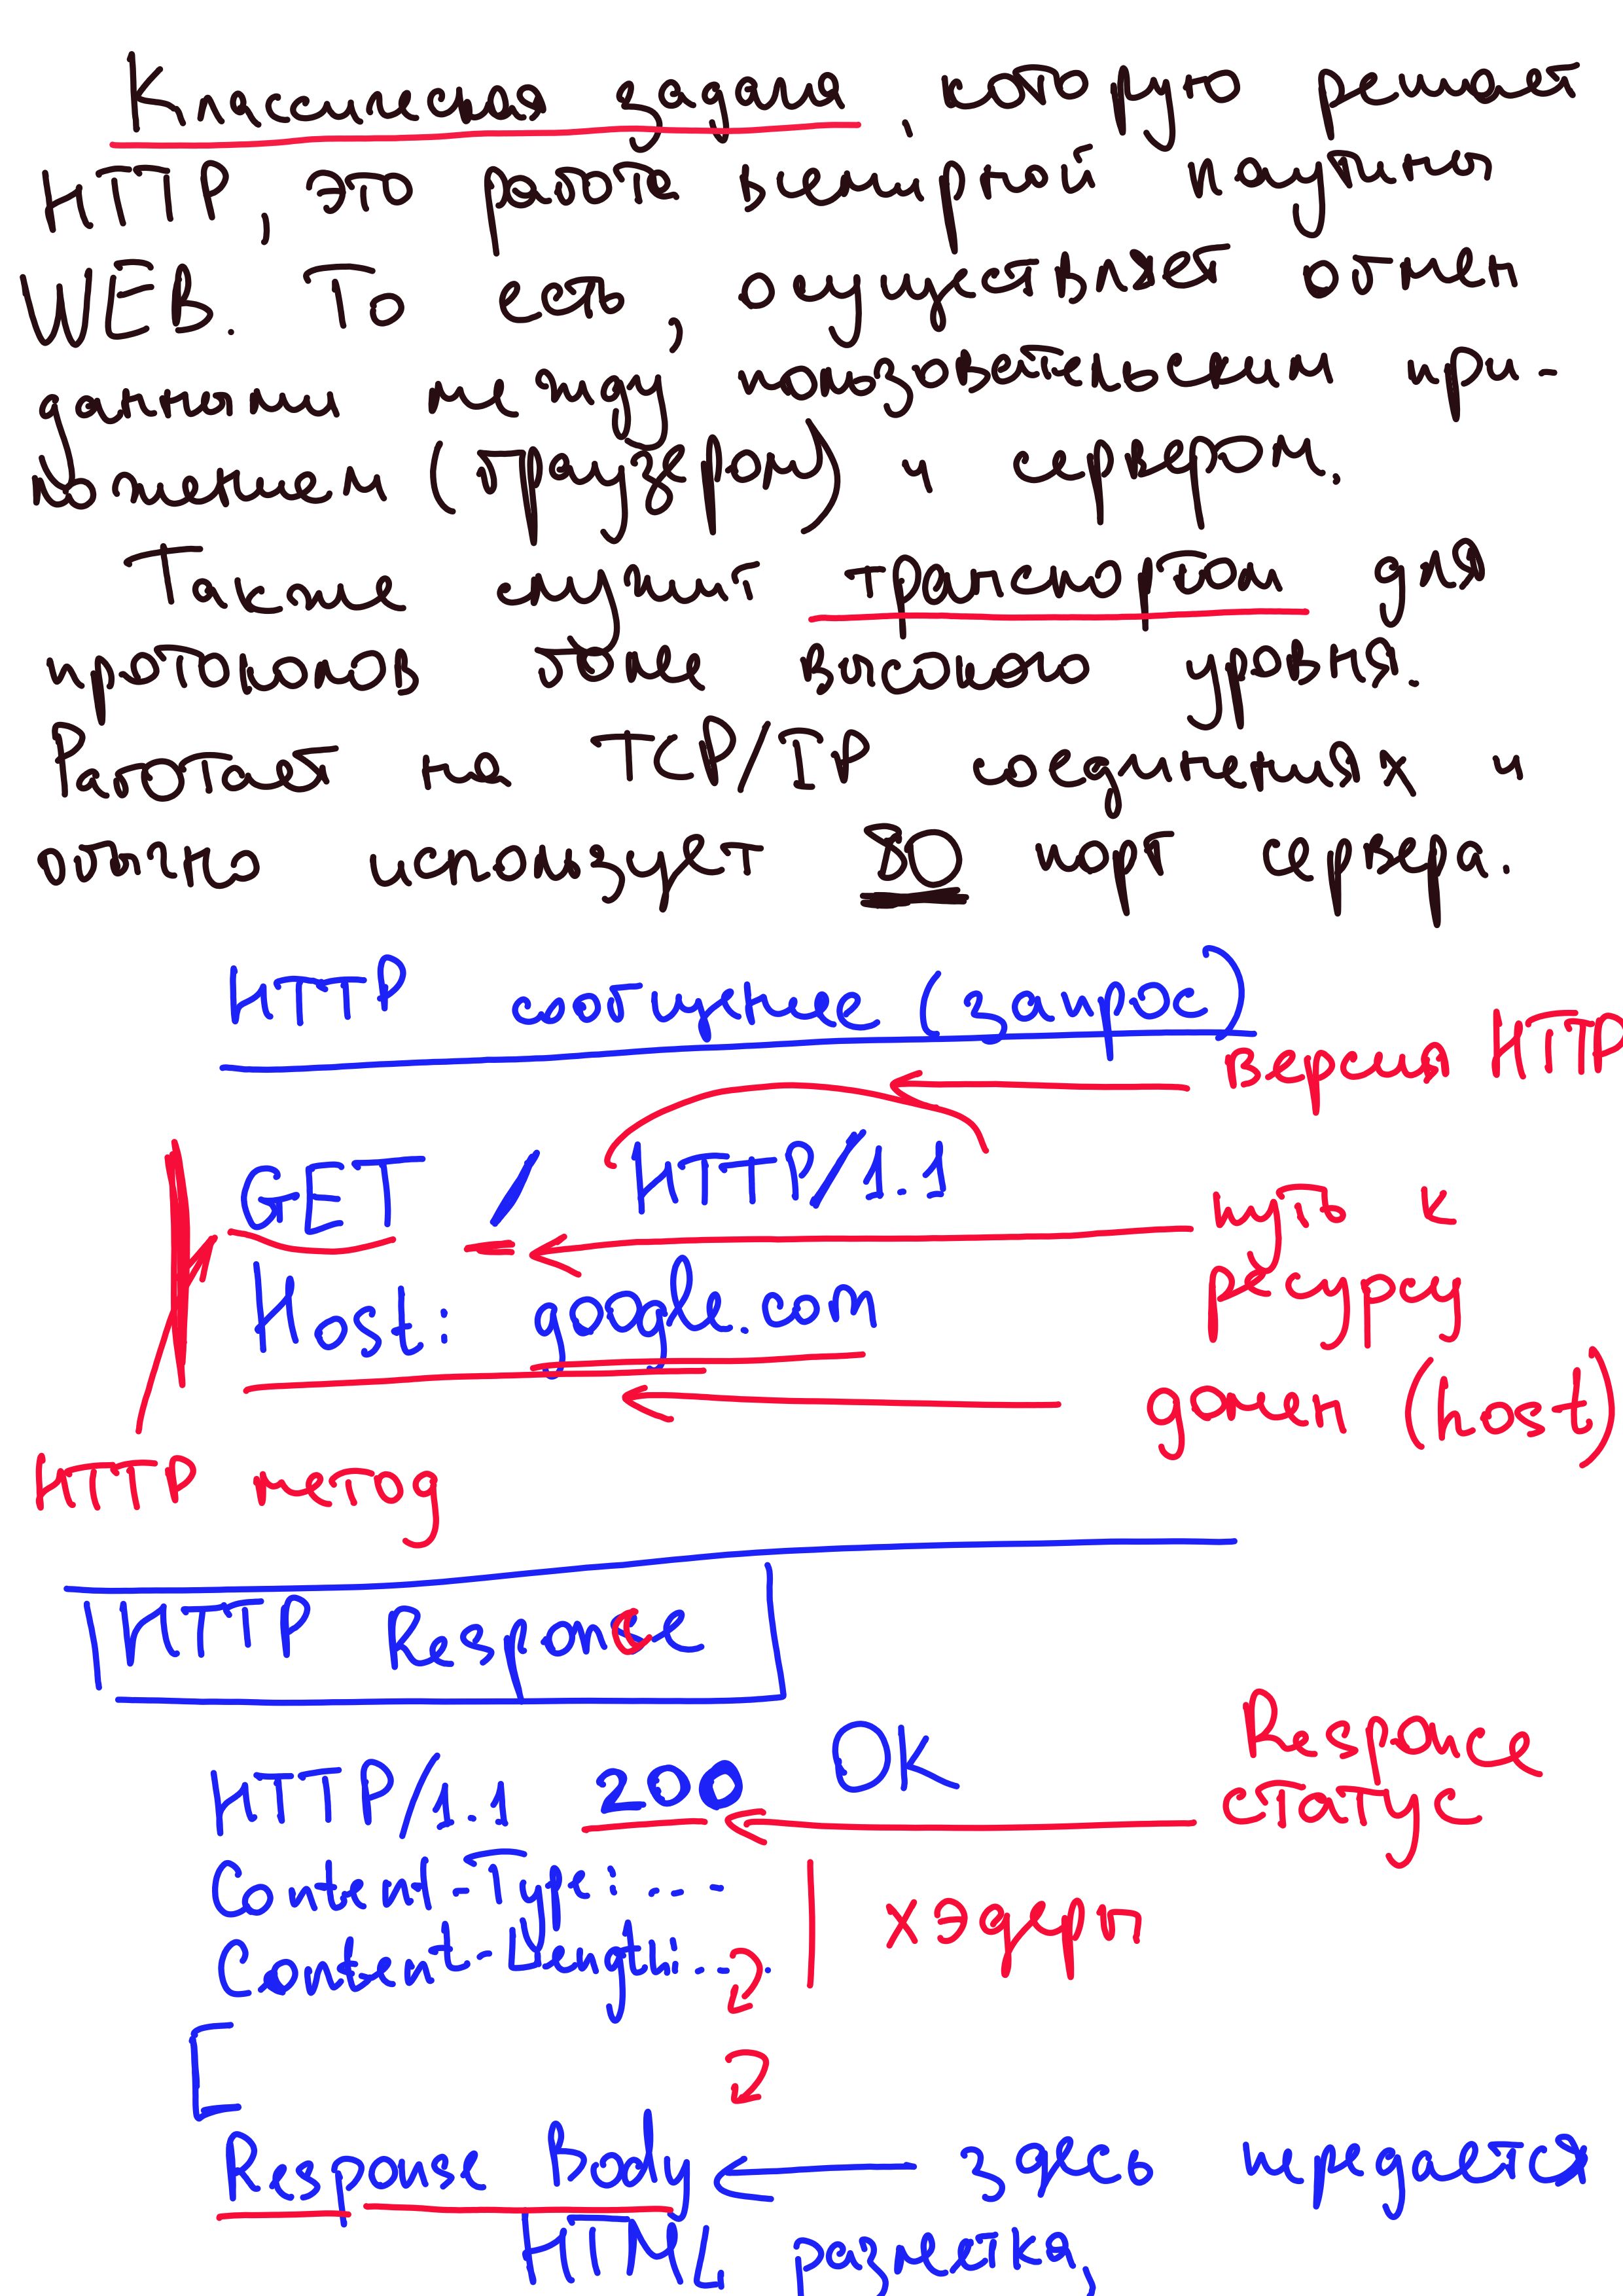 Классическая задача, которую решает
HTTP, это работа всемирной паутины
WEB. То есть, осуществляет обмен
данными между пользовательским при-
ложением (браузером) и сервером.
Также служит транспортом для
протоколов более высокого уровня.
Работает на TCP/IP соединениях и
обычно использует 80 порт сервера.
HTTP сообщение (запрос)
версия HTTP
GET / HTTP/1.1
путь к
ресурсу
Host: google.com
домен (host)
HTTP метод
HTTP Responce
HTTP/1.1 200 OK
Responce
статус
Content-Type: ...
Content-Length: ...
хэдеры
Response Body ← здесь передается
HTML разметка,